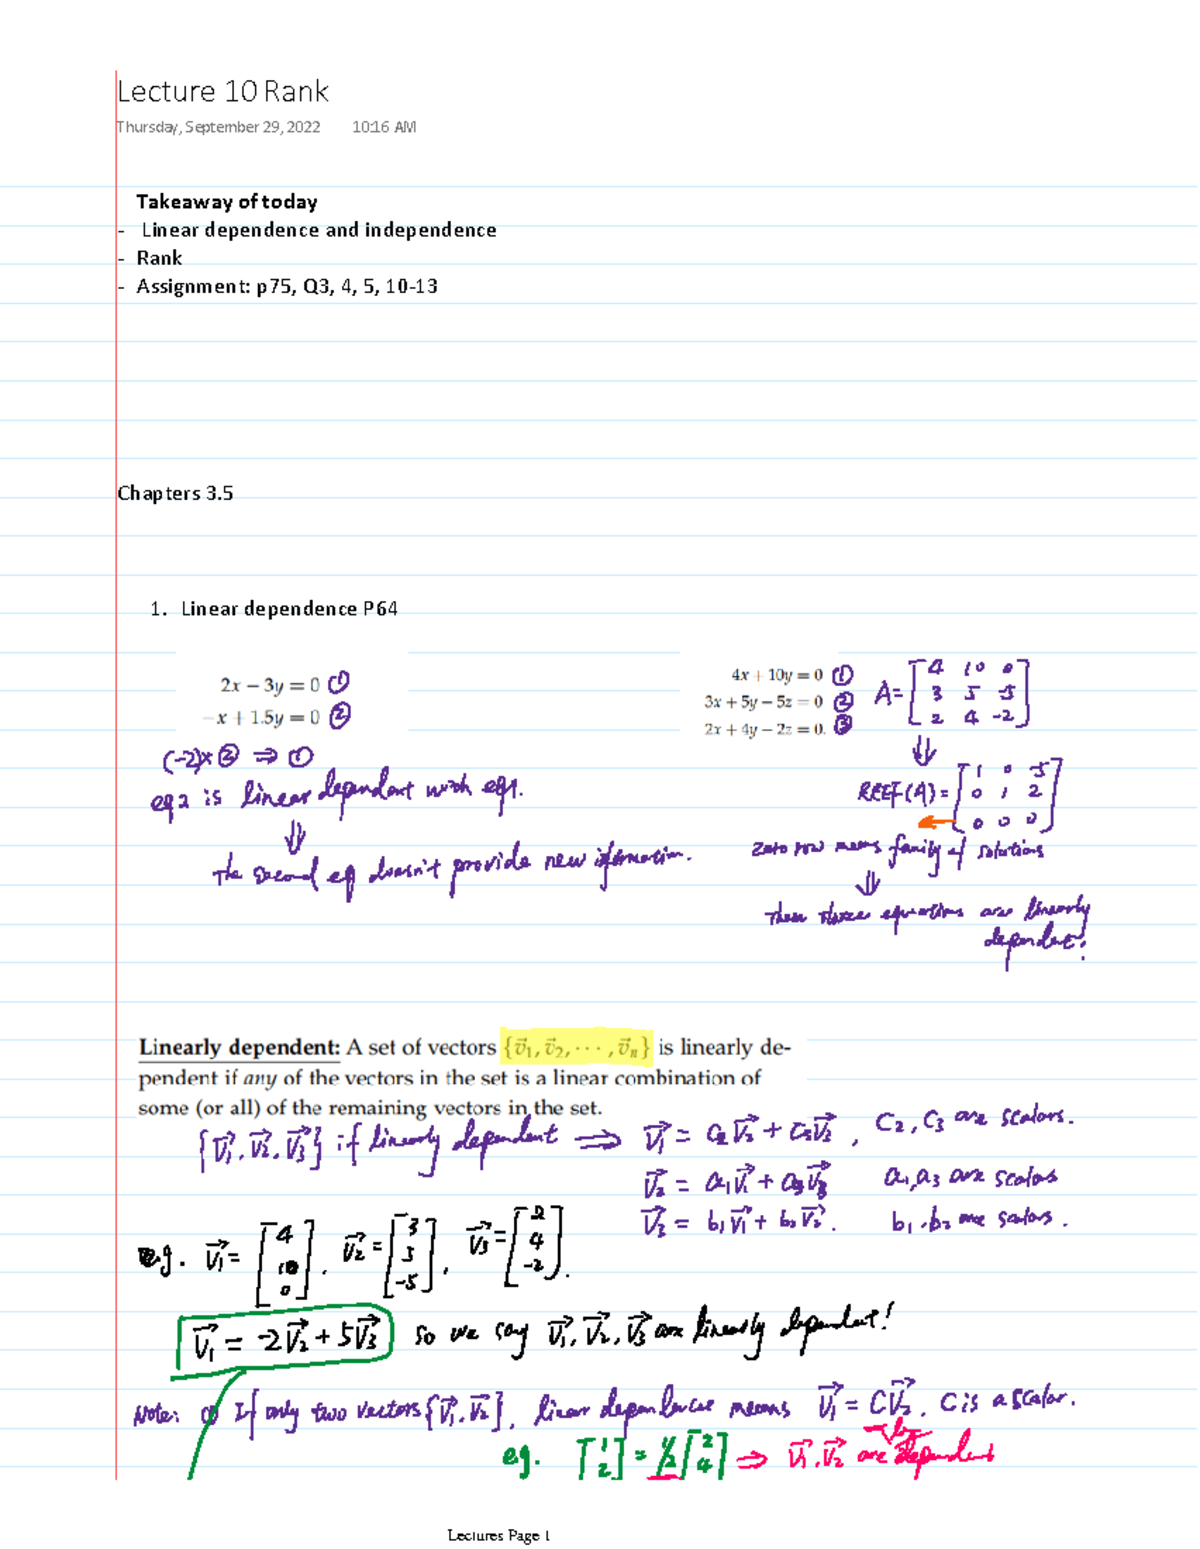 Lecture 10 Rank
Thursday, September 29, 2022 10:16 AM
Takeaway of today
- Linear dependence and independence
- Rank
- Assignment: p75, Q3, 4, 5, 10-13
Chapters 3.5
1. Linear dependence P64
2x − 3y = 0 ①
−x + 1.5y = 0 ②
(-2)×② ⇒ ①
eq 2 is linear dependent with eq1.
⇓
The second eq doesn't provide new information.
4x + 10y = 0 ①
3x + 5y − 5z = 0 ②
2x + 4y − 2z = 0. ③
A = [4 10 0
3 5 -5
2 4 -2]
⇓
RREF(A) = [1 0 -5
0 1 2
0 0 0]
←
Zero row means family of solutions
⇓
These three equations are linearly
dependent!
Linearly dependent: A set of vectors {v⃗1, v⃗2, ··· , v⃗n} is linearly de-
pendent if any of the vectors in the set is a linear combination of
some (or all) of the remaining vectors in the set.
{v⃗1, v⃗2, v⃗3} if linearly dependent ⇒ v⃗1 = c2v⃗2 + c3v⃗3, c2, c3 are scalars.
v⃗2 = a1v⃗1 + a3v⃗3 a1, a3 are scalars
v⃗3 = b1v⃗1 + b2v⃗2. b1, b2 are scalars.
e.g. v⃗1 = [4
10
0], v⃗2 = [3
5
-5], v⃗3 = [2
4
-2].
v⃗1 = -2v⃗2 + 5v⃗3 so we say v⃗1, v⃗2, v⃗3 are linearly dependent!
Note: ① If only two vectors {v⃗1, v⃗2}, linear dependence means v⃗1 = Cv⃗2, C is a scalar.
e.g. [1
2] = ½ [2
4] ⇒ v⃗1, v⃗2 are dependent
Lectures Page 1